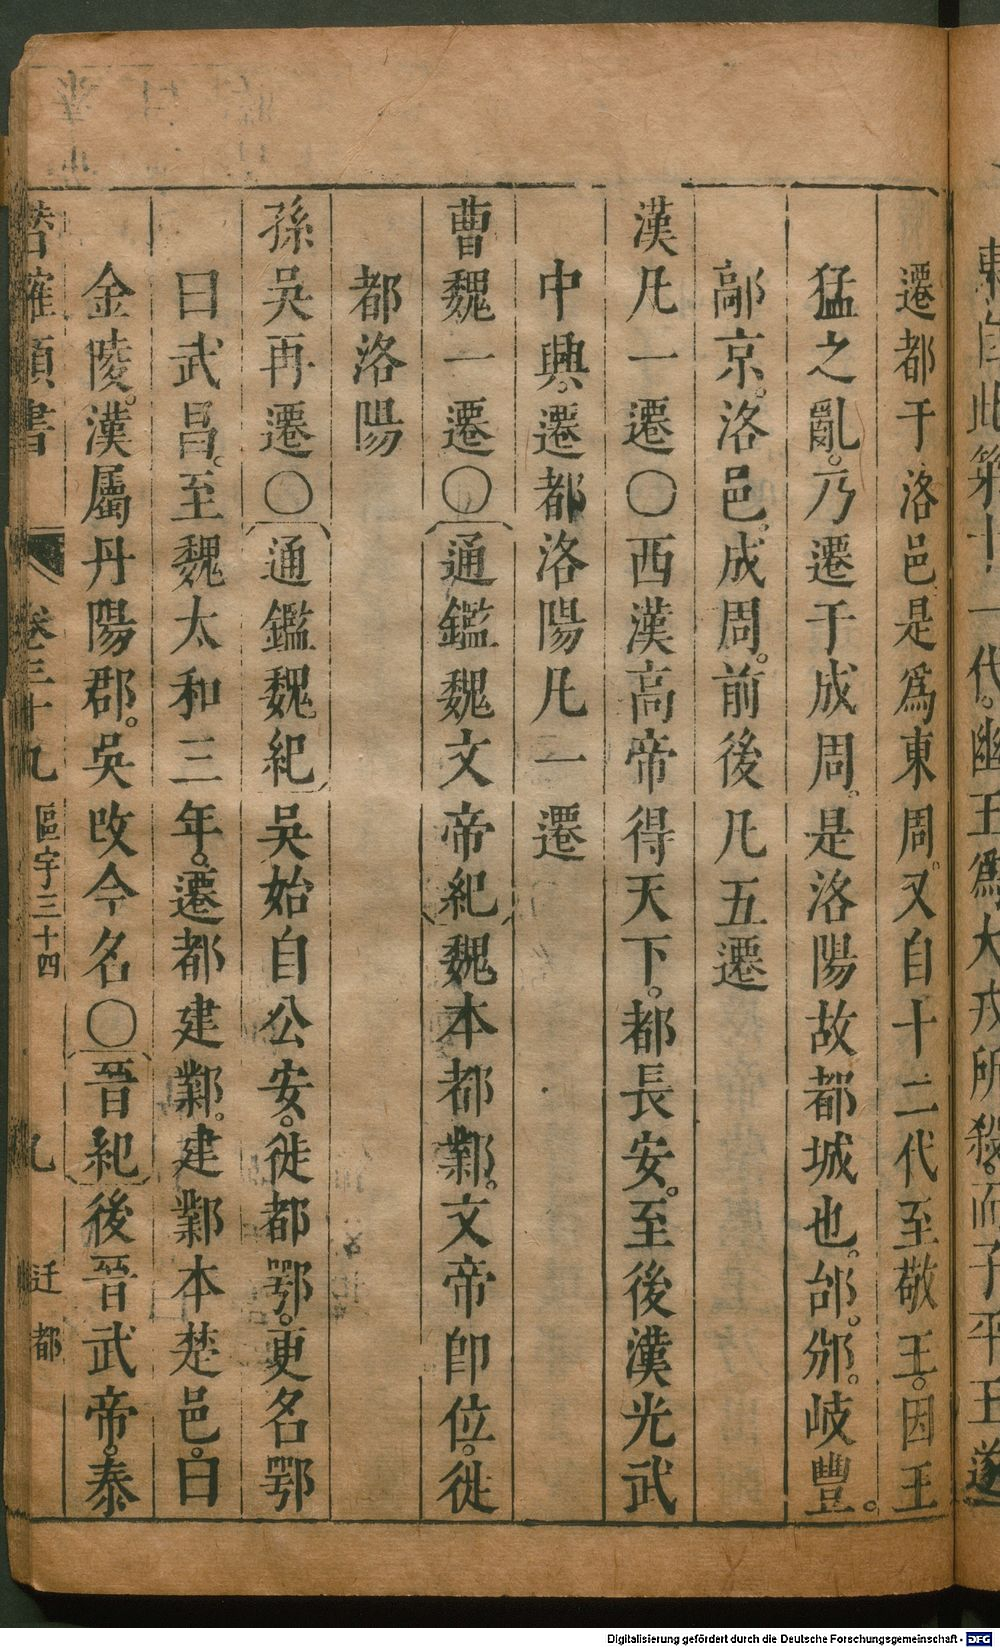 自此第十一代。幽王爲犬戎所殺。而子平王遂
遷都于洛邑是爲東周。又自十二代至敬王。因王
猛之亂。乃遷于成周。是洛陽故都城也。邰。邠。岐豐。
鄗京。洛邑。成周。前後凡五遷
漢凡一遷〇西漢高帝得天下。都長安。至後漢光武
中興。遷都洛陽凡一遷
曹魏一遷〇〔通鑑魏文帝紀〕魏本都鄴。文帝卽位。徙
都洛陽
孫吳再遷〇〔通鑑魏紀〕吳始自公安。徙都鄂。更名鄂
曰武昌。至魏太和三年。遷都建鄴。建鄴本楚邑。曰
金陵。漢屬丹陽郡。吳改今名〇〔晉紀〕後晉武帝。泰
潛確類書 卷三十九 區宇三十四 九 迁都
Digitalisierung gefördert durch die Deutsche Forschungsgemeinschaft - DFG